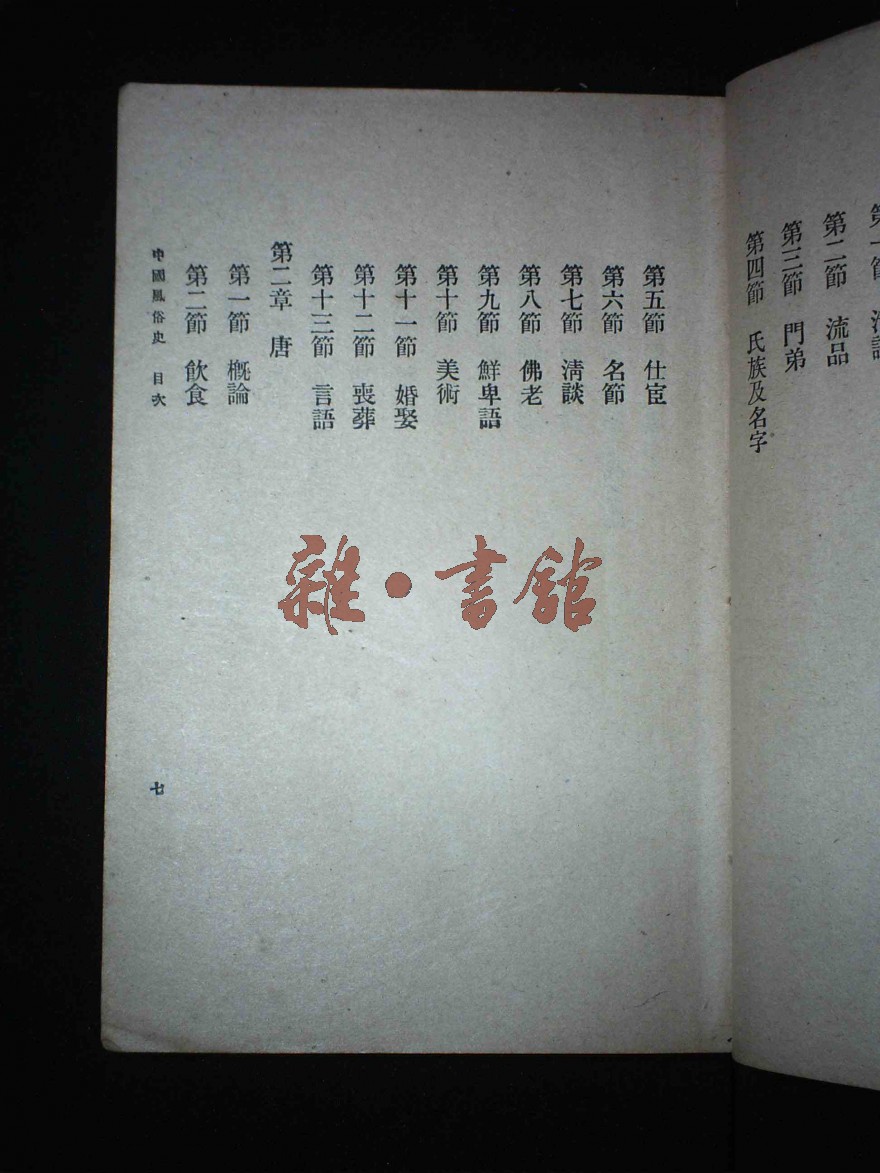 第二節　流品
第三節　門弟
第四節　氏族及名字
第五節　仕宦
第六節　名節
第七節　淸談
第八節　佛老
第九節　鮮卑語
第十節　美術
第十一節　婚娶
第十二節　喪葬
第十三節　言語
第二章　唐
第一節　概論
第二節　飮食
中國風俗史　目次
七
雜・書館